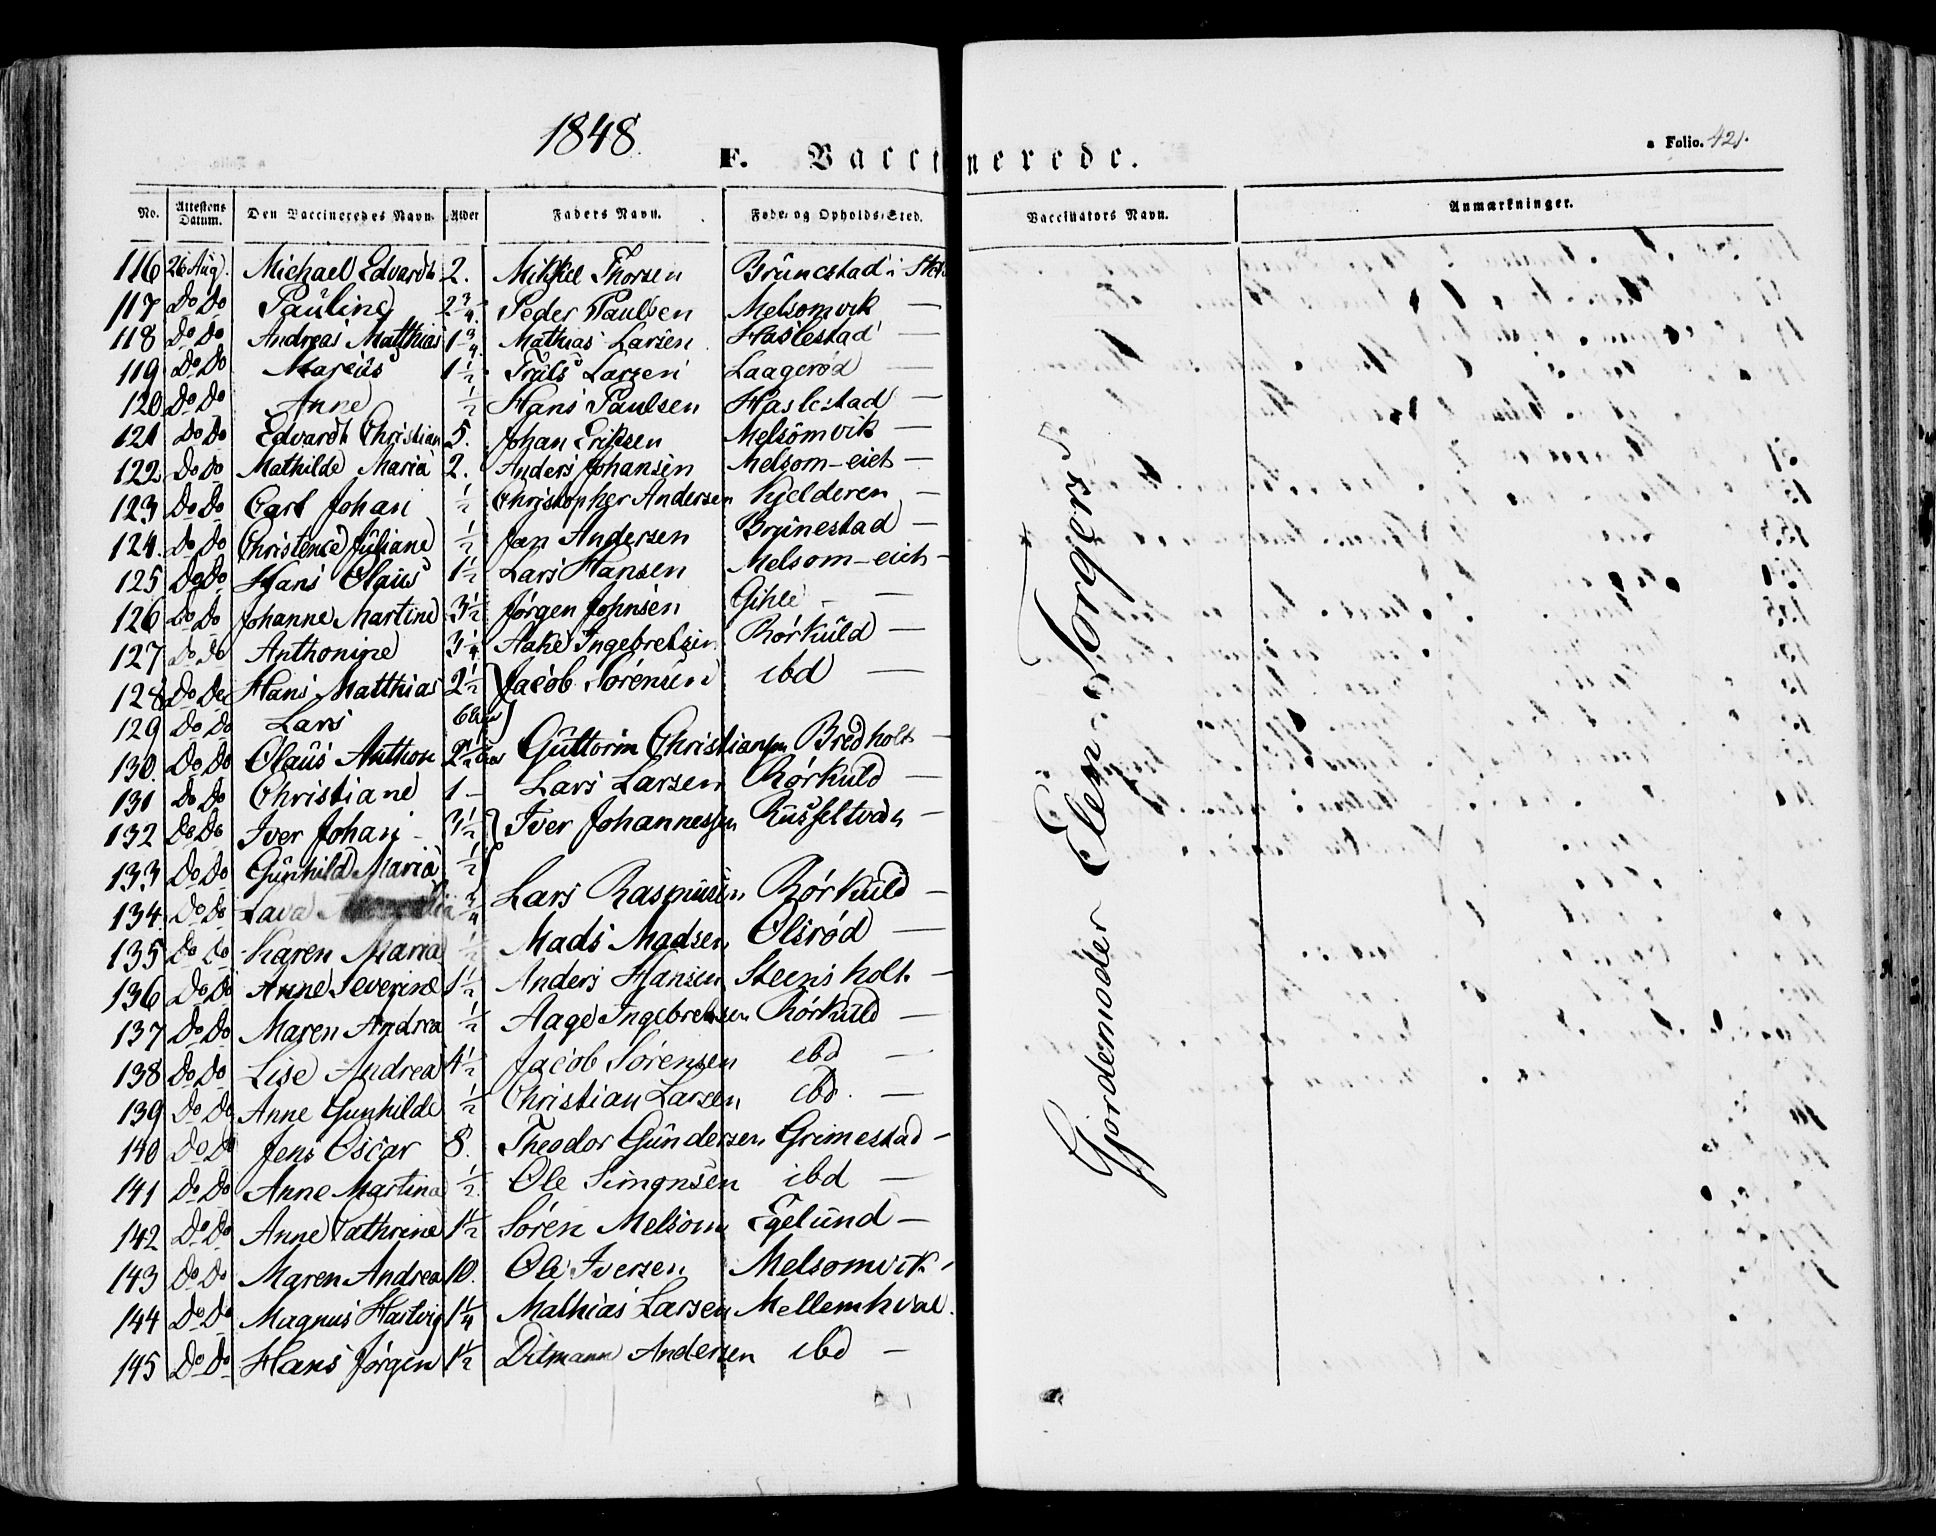 1848.
F. Vaccinerede.
a Folio. 421.
No. Attestens Datum. Den Vaccineredes Navn. Alder Faders Navn. Føde- og Opholds-Sted. Vaccinators Navn. Anmærkninger.
116 26 Aug. Michael Edvardt 2. Mikkel Thorsen Brünestad i
117 Do Do Pauline 2 3/4 Peder Paulsen Melsomvik —
118 Do Do Andreas Matthias 1 3/4 Mathias Larsen Haslestad
119 Do Do Marcüs 1 1/2 Truls Larsen Laagerød —
120 Do Do Anne 1/2 Hans Paulsen Haslestad —
121 Do Do Edvardt Christian 5. Johan Eriksen Melsomvik —
122 Do Do Mathilde Maria 2. Anders Johansen Melsom-eiet —
123 Do Do Carl Johan 1/2 Christopher Andersen Kjelderen —
124. Do Do Christense Jüliane 1/2 Jan Andersen Brünestad —
125 Do Do Hans Olaüs 1 1/2 Lars Hansen Melsom-eiet -
126 Do Do Johanne Martine 3 1/2 Jørgen Johnsen Gihle — —
127 Do Do Anthonine 3 1/4 Aake Ingebretsen Rørküld —
128 Do Do Hans Matthias 2 1/2 } Jacob Sørensen ibd —
129 Do Do Lars
130. Do Do Olaüs Anthon 2 1/2 Güttorm Christiansen Bredholt -
131 Do Do Christiane 1 — Lars Larsen Rørküld —
132 Do Do Iver Johan - 3 1/2 } Iver Johannessen Rüsseltvedt —
133 Do Do Günhild Maria 1/2
134. Do Do 3/4 Lars Rasmüssen Rørküld —
135 Do Do Karen Maria 1/2 Mads Madsen Olsrød —
136 Do Do Anne Severine 1 1/2 Anders Hansen Steensholt —
137 Do Do Maren Andrea 1/2 Aage Ingebretsen Rørküld —
138 Do Do Lise Andrea 4 1/2 Jacob Sørensen ibd —
139 Do Do Anne Gunhilde 1/2 Christian Larsen ibd. —
140 Do Do Jens Oscar 8. Theodor Gündersen Grimestad -
141 Do Do Anne Martina 1/2 Ole Simonsen ibd —
142 Do Do Anne Cathrine 1 1/2 Søren Melsom Egelund —
143 Do Do Maren Andrea 10. Ole Iversen Melsomvik -
144 Do Do Magnus Hartvig 1 1/4 Mathias Larsen Mellemhval.
145 Do Do Hans Jørgen 1 1/2 Ditmann Andersen ibd —
Gjordemoder Elen Torgers